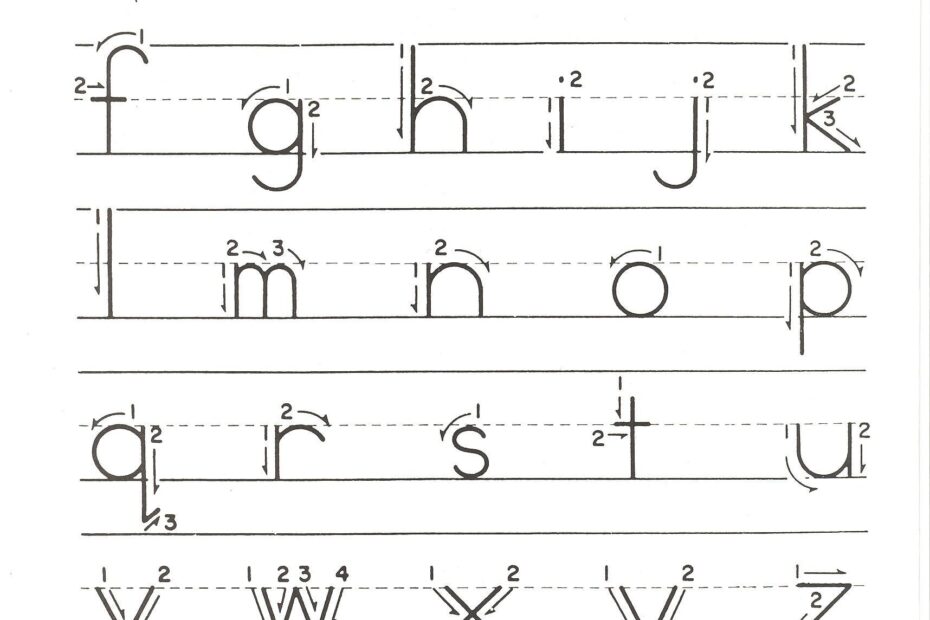 1 2 f 1 2 g 1 2 h 1 2 i 1 2 j 1 2 3 k
1 l 1 2 3 m 1 2 n 1 o 1 2 p
1 2 3 q 1 2 r 1 s 1 2 t 1 2 u
1 2 v 1 2 3 4 w 1 2 x 1 2 1 2 z